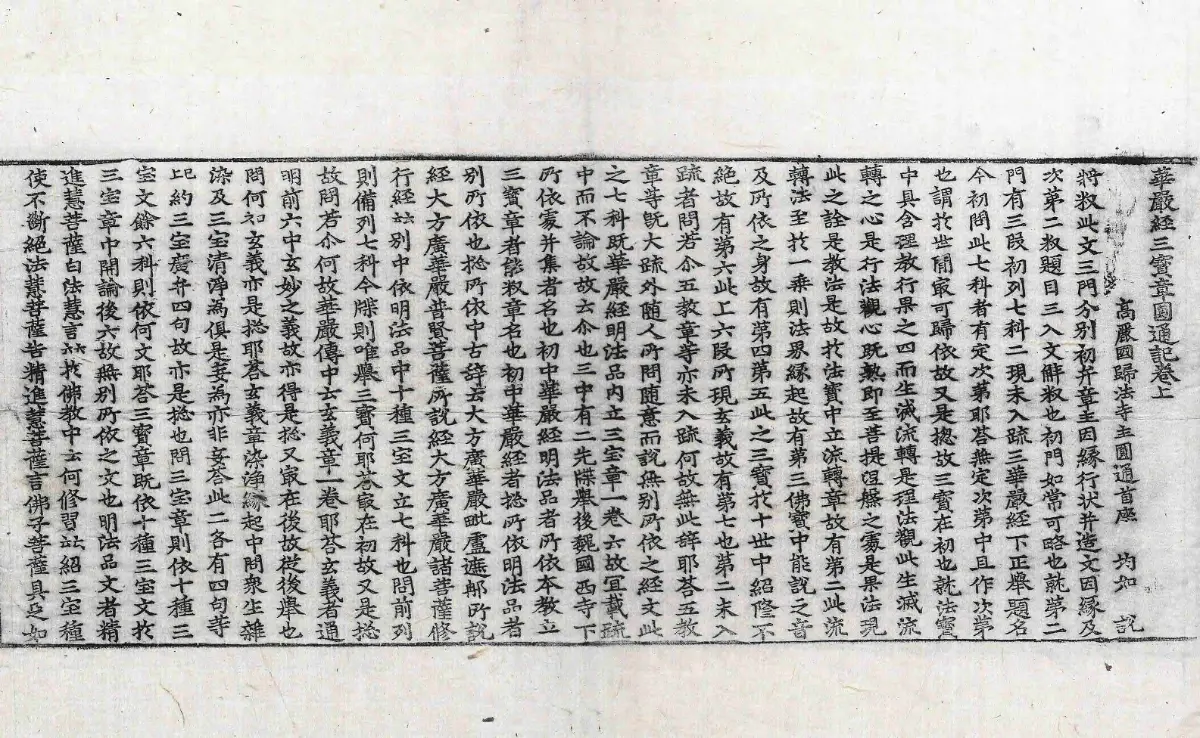 華嚴經三寶章圓通記卷上
高麗國歸法寺主圓通首座 均如 說
將釈此文三門分別初弁章主因緣行状并造文因緣及
次第二釈題目三入文觧釈也初門如常可略也就第二
門有三叚初列七科二現未入疏三華嚴經下正舉題名
今初問此七科者有定次第耶荅無定次第中且作次第
也謂扵世間冣可歸依故又是揔故三寶在初也就法寶
中具含理教行果之四而生滅流轉是理法觀此生滅流
轉之心是行法觀心既熟即至菩提涅槃之處是果法現
此之詮是教法是故扵法寶中立流轉章故有第二此流
轉法至扵一乘則法界緣起故有第三佛寶中能說之音
及所依之身故有第四第五此之三寶扵十世中紹隆不
絶故有第六此上六叚所現玄義故有第七也第二未入
疏者問若尒五教章等亦未入疏何故無此辞耶荅五教
章等旣大疏外随人所問随意而說無別所依之經文此
之七科既華嚴經明法品内立三宝章一卷六故宜載疏
中而不論故故云尒也三中有二先牒舉後魏國西寺下
所依處并集者名也初中華嚴經明法品者所依本教立
三寶章者能釈章名也初中華嚴經者揔所依明法品者
別所依也揔所依中古辞云大方廣華嚴毗盧遮那所說
經大方廣華嚴普賢菩薩所說經大方廣華嚴諸菩薩修
行經䒭別中依明法品中十種三宝文立七科也問前列
則備列七科今牒則唯舉三寶何耶荅冣在初故又是揔
故問若尒何故華嚴傳中云玄義章一卷耶荅玄義者通
明前六中玄妙之義故亦得是揔又冣在後故從後舉也
問何知玄義亦是揔耶荅玄義章染淨緣起中問衆生雜
染及三宝清淨為俱是妄為亦非妄荅此二各有四句等
如約三宝廣弁四句故亦是揔也問三宝章則依十種三
宝文餘六科則依何文耶荅三寶章旣依十種三宝文扵
三宝章中開論後六故無別所依之文也明法品文者精
進慧菩薩白法慧言扵佛教中云何修習䒭紹三宝種
使不斷絕法慧菩薩告精進慧菩薩言佛子菩薩具足如